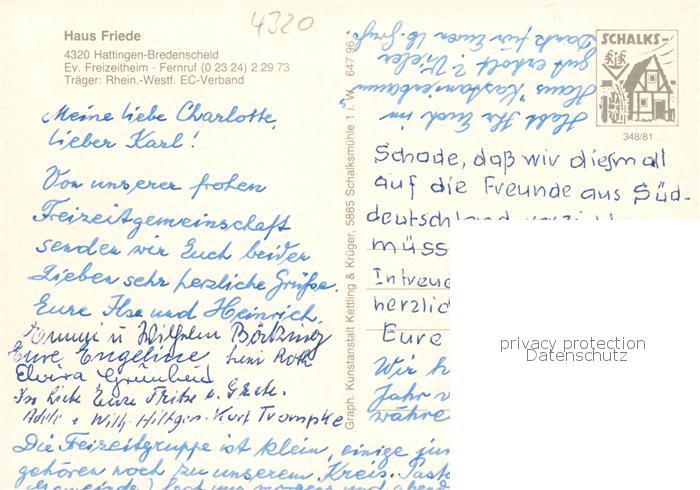 4320
Haus Friede
4320 Hattingen-Bredenscheid
Ev. Freizeitheim · Fernruf (0 23 24) 2 29 73
Träger: Rhein.-Westf. EC-Verband
Meine liebe Charlotte,
lieber Karl!
Von unserer frohen
Freizeitgemeinschaft
senden wir Euch beiden
Lieben sehr herzliche Grüße.
Eure Ilse und Heinrich.
Emmi u Wilhelm
Eure Engeline Leni Roth
Elvira
In Liebe Eure Fritze u. Grete.
Adele + Willi Hiltger Kurt Trompke
Die Freizeitgruppe ist klein, einige jun
gehören noch zu unserem Kreis. Past
Graph. Kunstanstalt Kettling & Krüger, 5885 Schalksmühle 1 i. W. 647 96
Habt Ihr Euch im
Haus "Kastanienbaum"
gut erholt? Vielen
Dank für Euren lb. Gruß.
SCHALKS-
348/81
Schade, daß wir diesmal
auf die Freunde aus Süd-
deutschland
müss
In treue
herzlic
Eure
Wir
Jahr
währe
privacy protection
Datenschutz